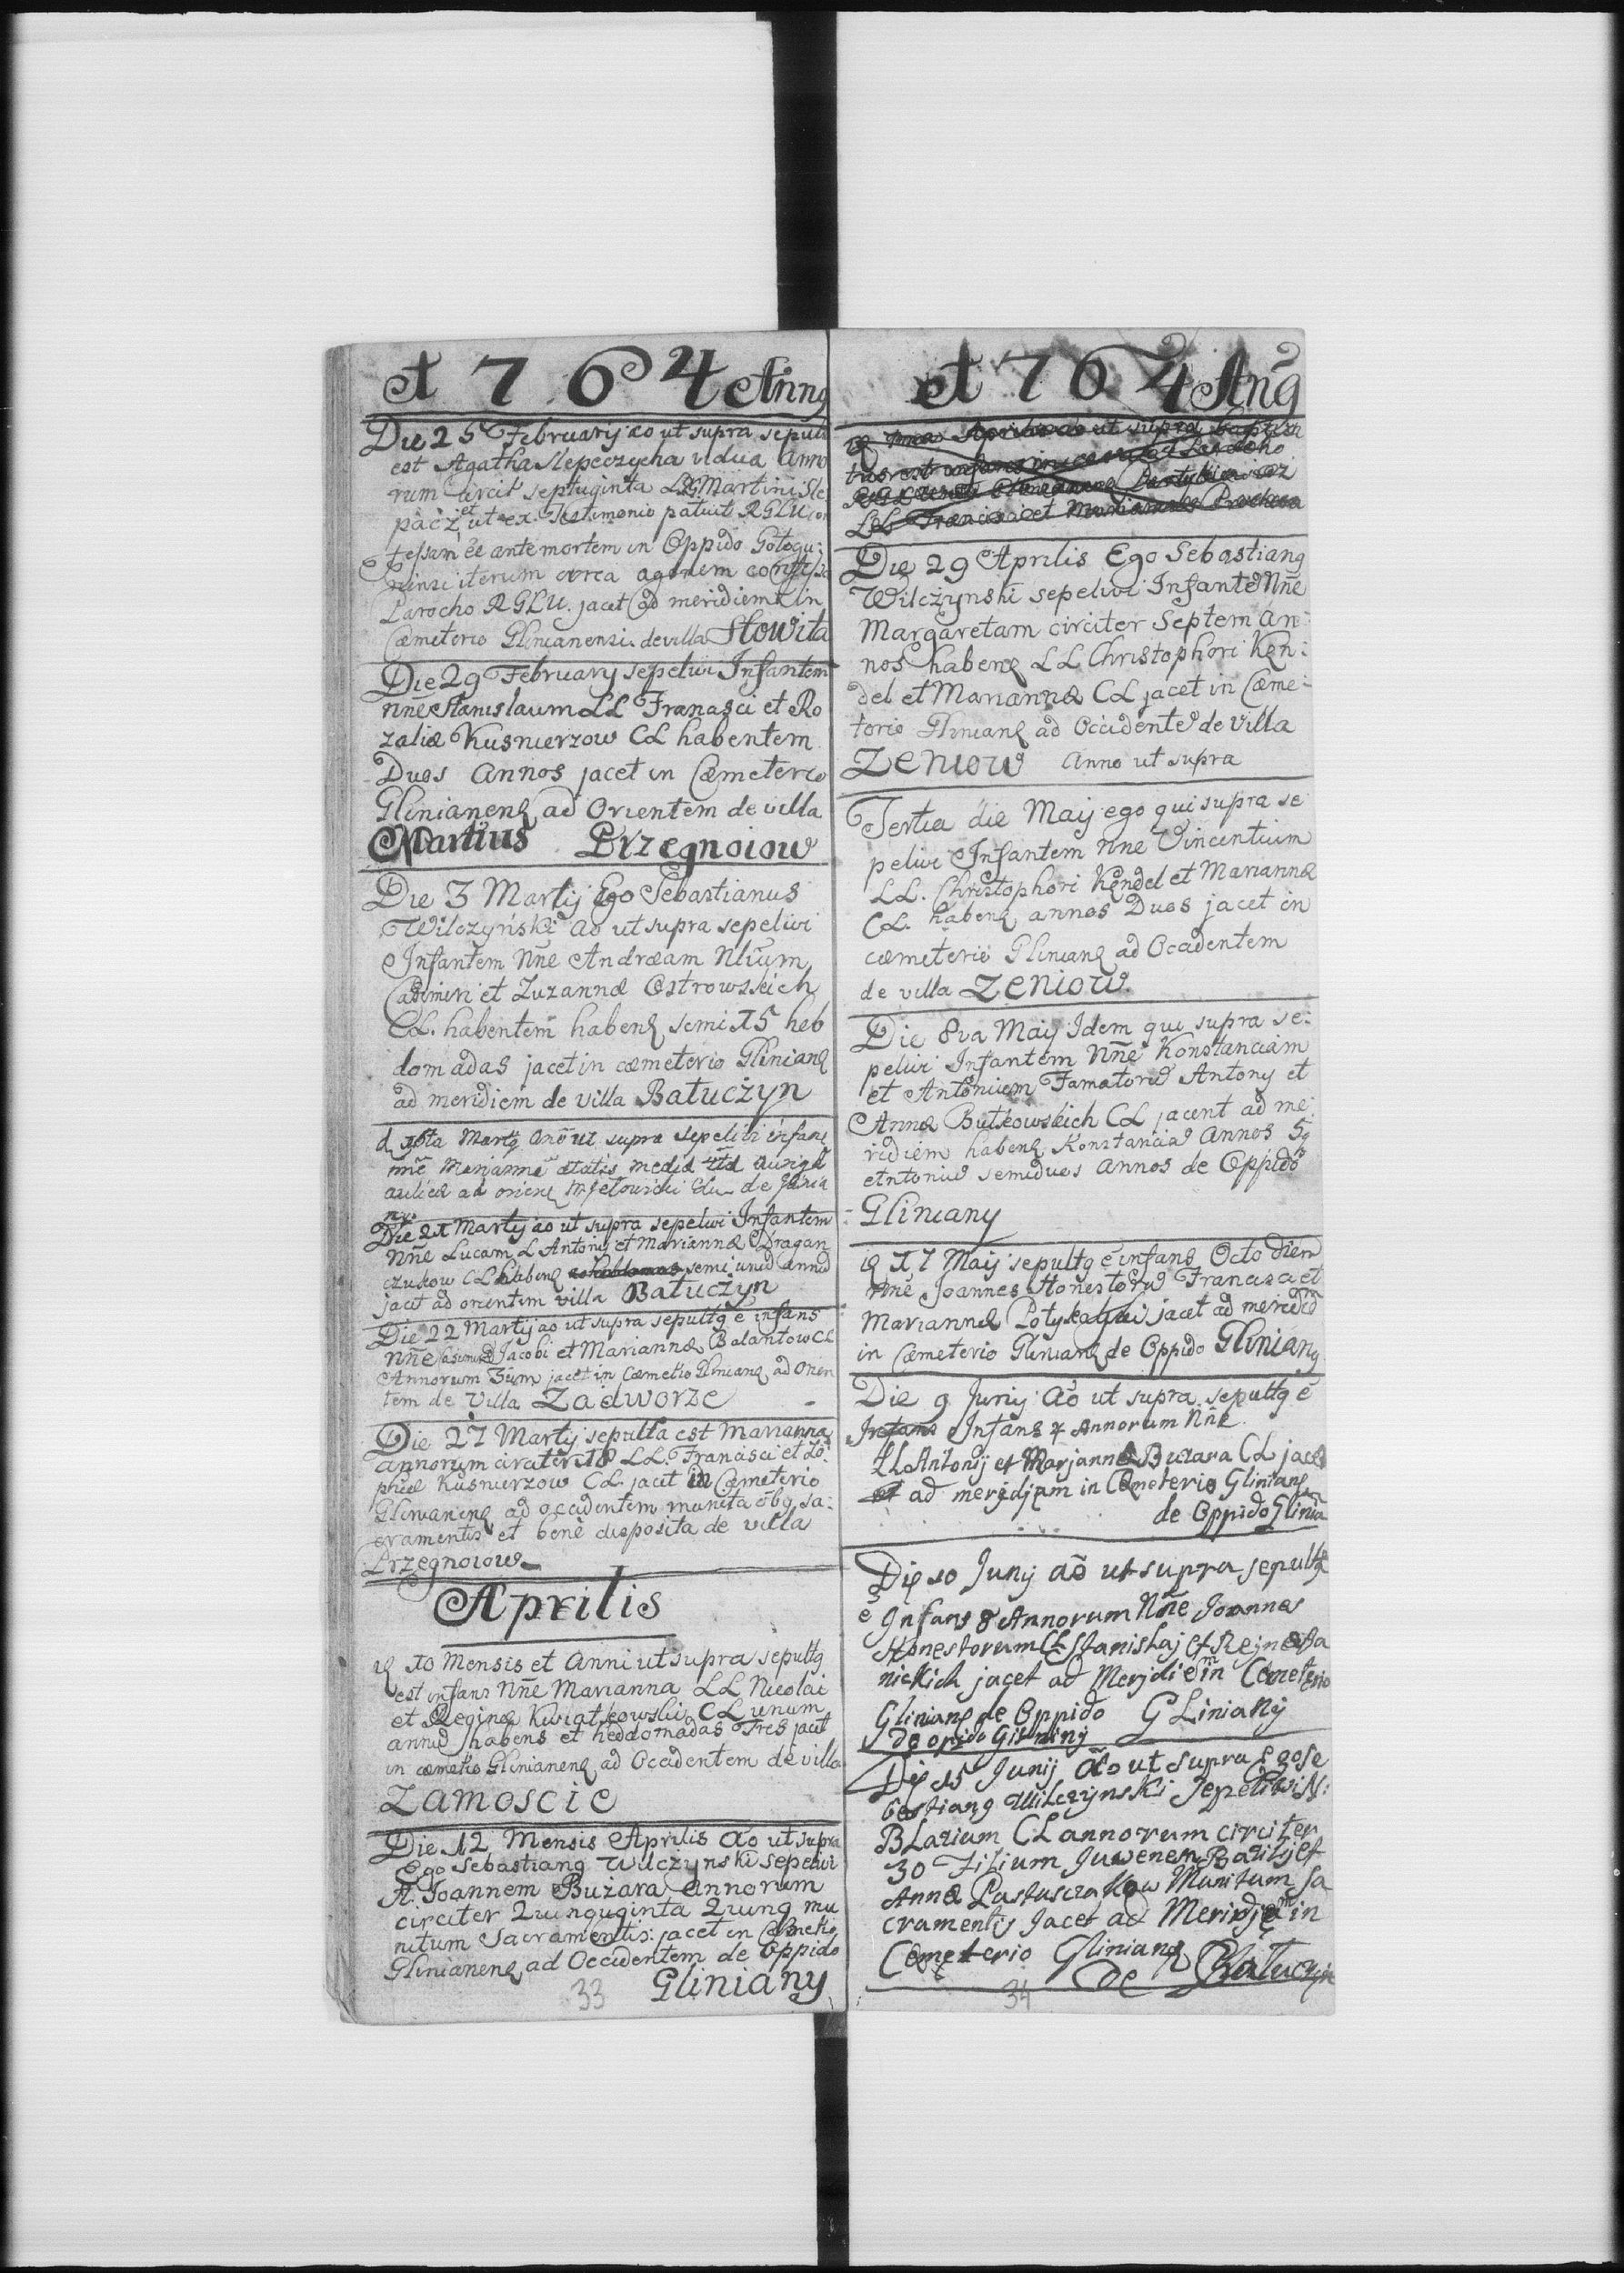 1764 Anng
Die 25 February ao ut supra sepult
est Agatha Slepeczycha vidua anno
rum circit septuginta LL Martini Sle
pacz et ut ex Testimonio patuit RGLU con
fessam ee ante mortem in Oppido Gołogu:
rinsi iterum circa agonem confessa
Parocho RGLU. jacet ad meridiem in
Cæmeterio Glinianensi de villa Słowita
Die 29 February sepelivi Infantem
nne Stanislaum LL Franasci et Ro
zaliæ Kusnierzow CL habentem
Duos Annos jacet in Cæmeterio
Glinianenȩ ad Orientem de villa
Martius Przegnoiow
Die 3 Martij Ego Sebastianus
Wilczyński ao ut supra sepelivi
Infantem Nne Andræam
Casimiri et Zuzannæ Ostrowskich
CL. habentem habenȩ semi 15 heb
domadas jacet in cæmeterio Glinianȩ
ad meridiem de villa Batuczyn
d 16ta Martij ano ut supra sepelivi infanȩ
nne Marjanne ætatis media
ad orienȩ de Glinia
ny.
Die 21 Martij ao ut supra sepelivi Infantem
Nne Lucam L Antonij et Mariannæ Dragan
czukow CL habenȩ semi unum annum
jacet ad orientem villa Batuczyn
Die 22 Martij ao ut supra sepultg e infans
Nne Casimirg Jacobi et Mariannæ Balantow CL
Annorum 3um jacet in Cæmetio Glinianȩ ad Orien
tem de Villa Zadworze
Die 27 Martij sepulta est Marianna
annorum circiter 18 LL. Francisci et Zo
phiæ Kusnierzow CL jacet in Cæmeterio
Glinianenȩ ad occidentem munita obg sa:
cramentis et bene disposita de villa
Przegnoiow
Aprilis
10 Mensis et Anni ut supra sepultg
est infans Nne Marianna LL Nicolai
et Reginæ Kwiatkowski CL unum
annu habens et hebdomadas Tres jacet
in cæmetio Glinianenȩ ad Occidentem de villa
Zamoscie
Die 12 Mensis Aprilis ao ut supra
Ego Sebastiang Wilczynski sepelivi
H. Joannem Bużara Annorum
circiter Quinquginta Quinq mu
nitum Sacramentis: jacet in Cæmetio
Glinianenȩ ad Occidentem de Oppido
Gliniany
33
1764 Ang
Aprilis ao ut supra baptisa
tus est infans
LL Francisci et Mariannæ
Die 29 Aprilis Ego Sebastiang
Wilczynski sepelivi Infante Nne
Margaretam circiter Septem an:
nos habenȩ LL Christophori Kȩn:
del et Mariannæ CL jacet in Cæme:
torio Glinianȩ ad Occidente de Villa
Zeniow Anno ut supra
Tertia die Maij ego qui supra se
pelivi Infantem Nne Vincentium
LL. Christophori Kȩndel et Mariannæ
CL. habenȩ annos Duos jacet in
cæmeterio Glinianȩ ad Occidentem
de villa Zeniow.
Die 8va Maij Idem qui supra se:
pelivi Infantem Nne Konstanciam
et Antonium Famatoru Antony et
Annæ Butkowskich CL jacent ad me:
ridiem habenȩ Konstancia Annos 5g
et Antoniu semiduos annos de Oppido
Gliniany
17 Maij sepultg e infans Octo dien
Nne Joannes Honestoru Francisca et
Mariannæ jacet ad meridie
in Cæmeterio Glinianȩ de Oppido Gliniany
Die 9 Junij Ao ut supra sepultg e
Infans Infans 4 Annorum Nne
LL Antonij et Marjannæ Buzara CL jacȩ
et ad meredjem in Cemeterio Glinianȩ
de Oppido Glinia
Die 10 Junij ao ut supra sepultg
e Infans 8 Annorum Nne Joannes
Honestorum CL Stanislaj et Rejne
nickich jacet ad Merjdiem in Cemeterio
Glinianȩ de Oppido GLiniany
de opido Glininy
Die 15 Junij ao ut supra Ego Se
bastiang Wilczynski Sepelivi N:
BLazium CL annorum circiter
30 Filium Juwenem Bazilij et
Annæ Pastuszakow Munitum Sa
cramentis Jacet ad Meridjem in
Cemeterio Glinianȩ
de Batuczyn
34